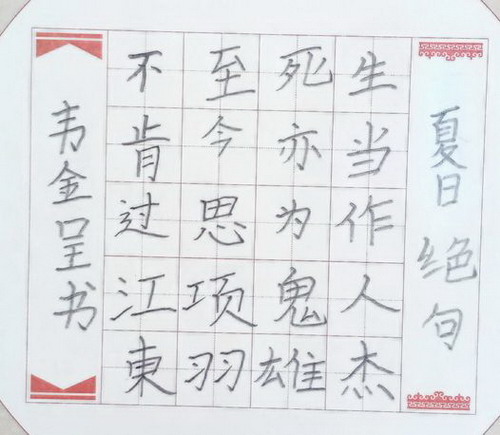 夏日绝句
生当作人杰
死亦为鬼雄
至今思项羽
不肯过江東
韦金呈书